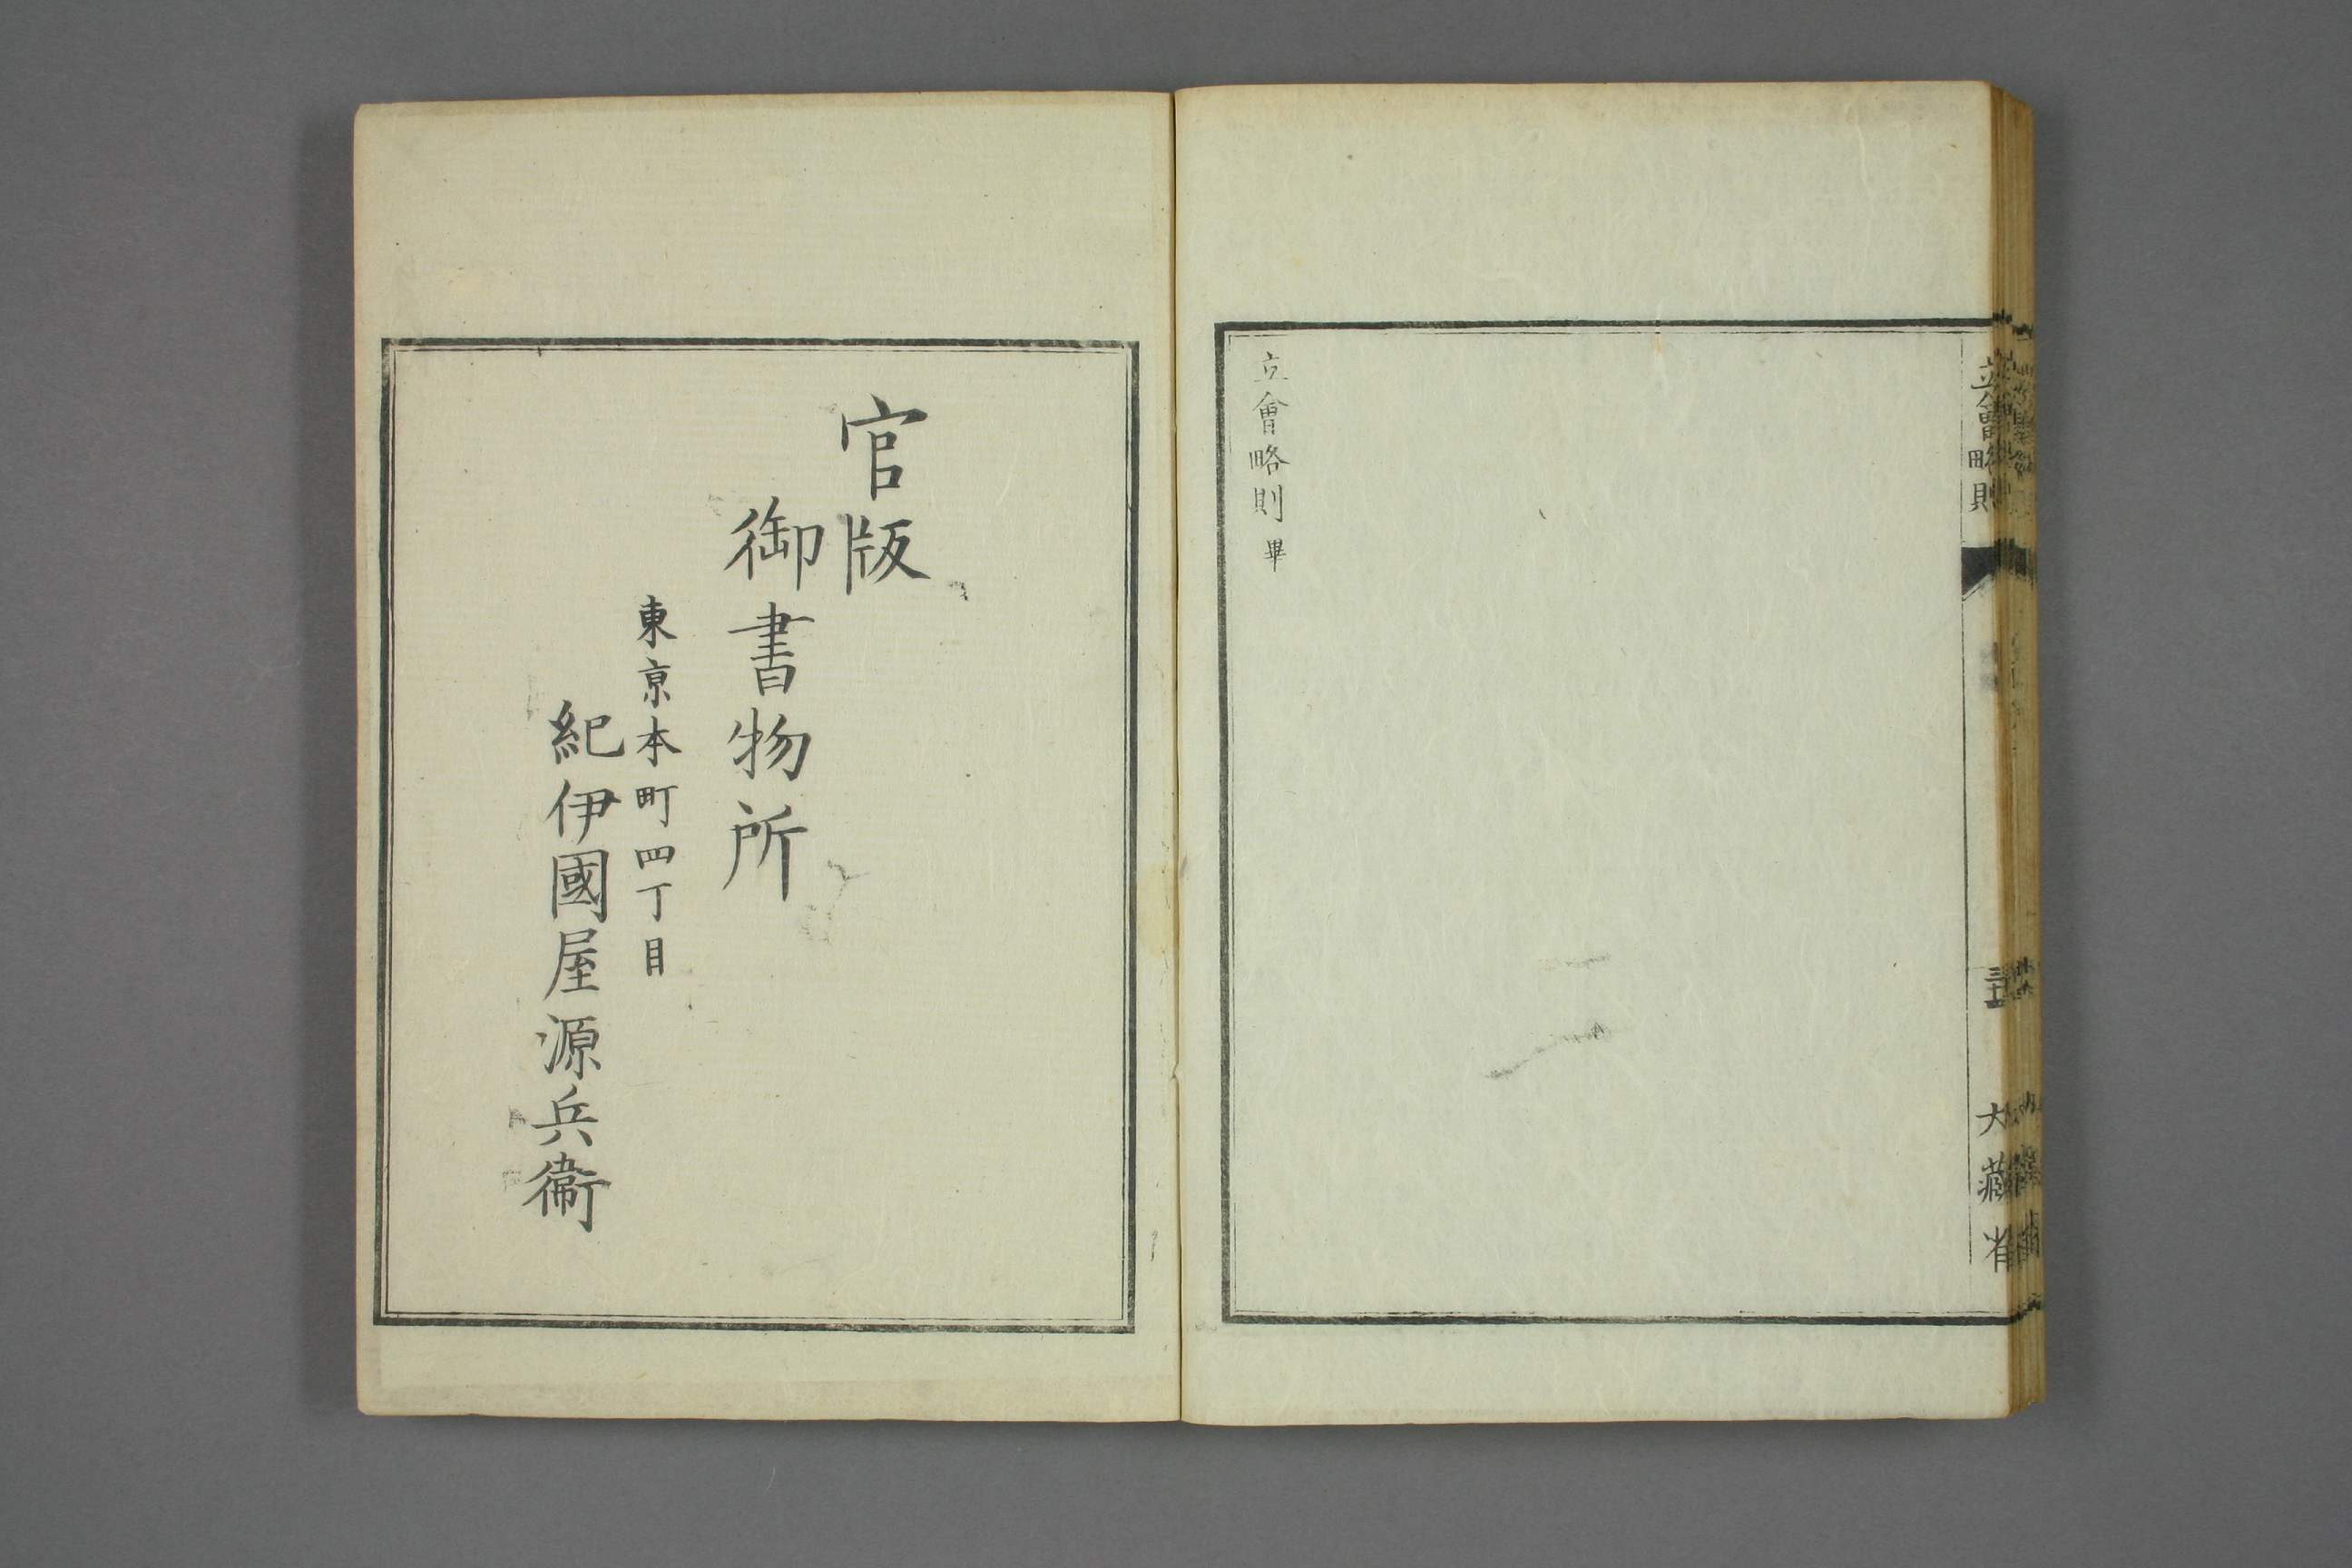 立會略則
大藏省
立會略則 畢
官版
御書物所
東亰本町四丁目
紀伊國屋源兵衛